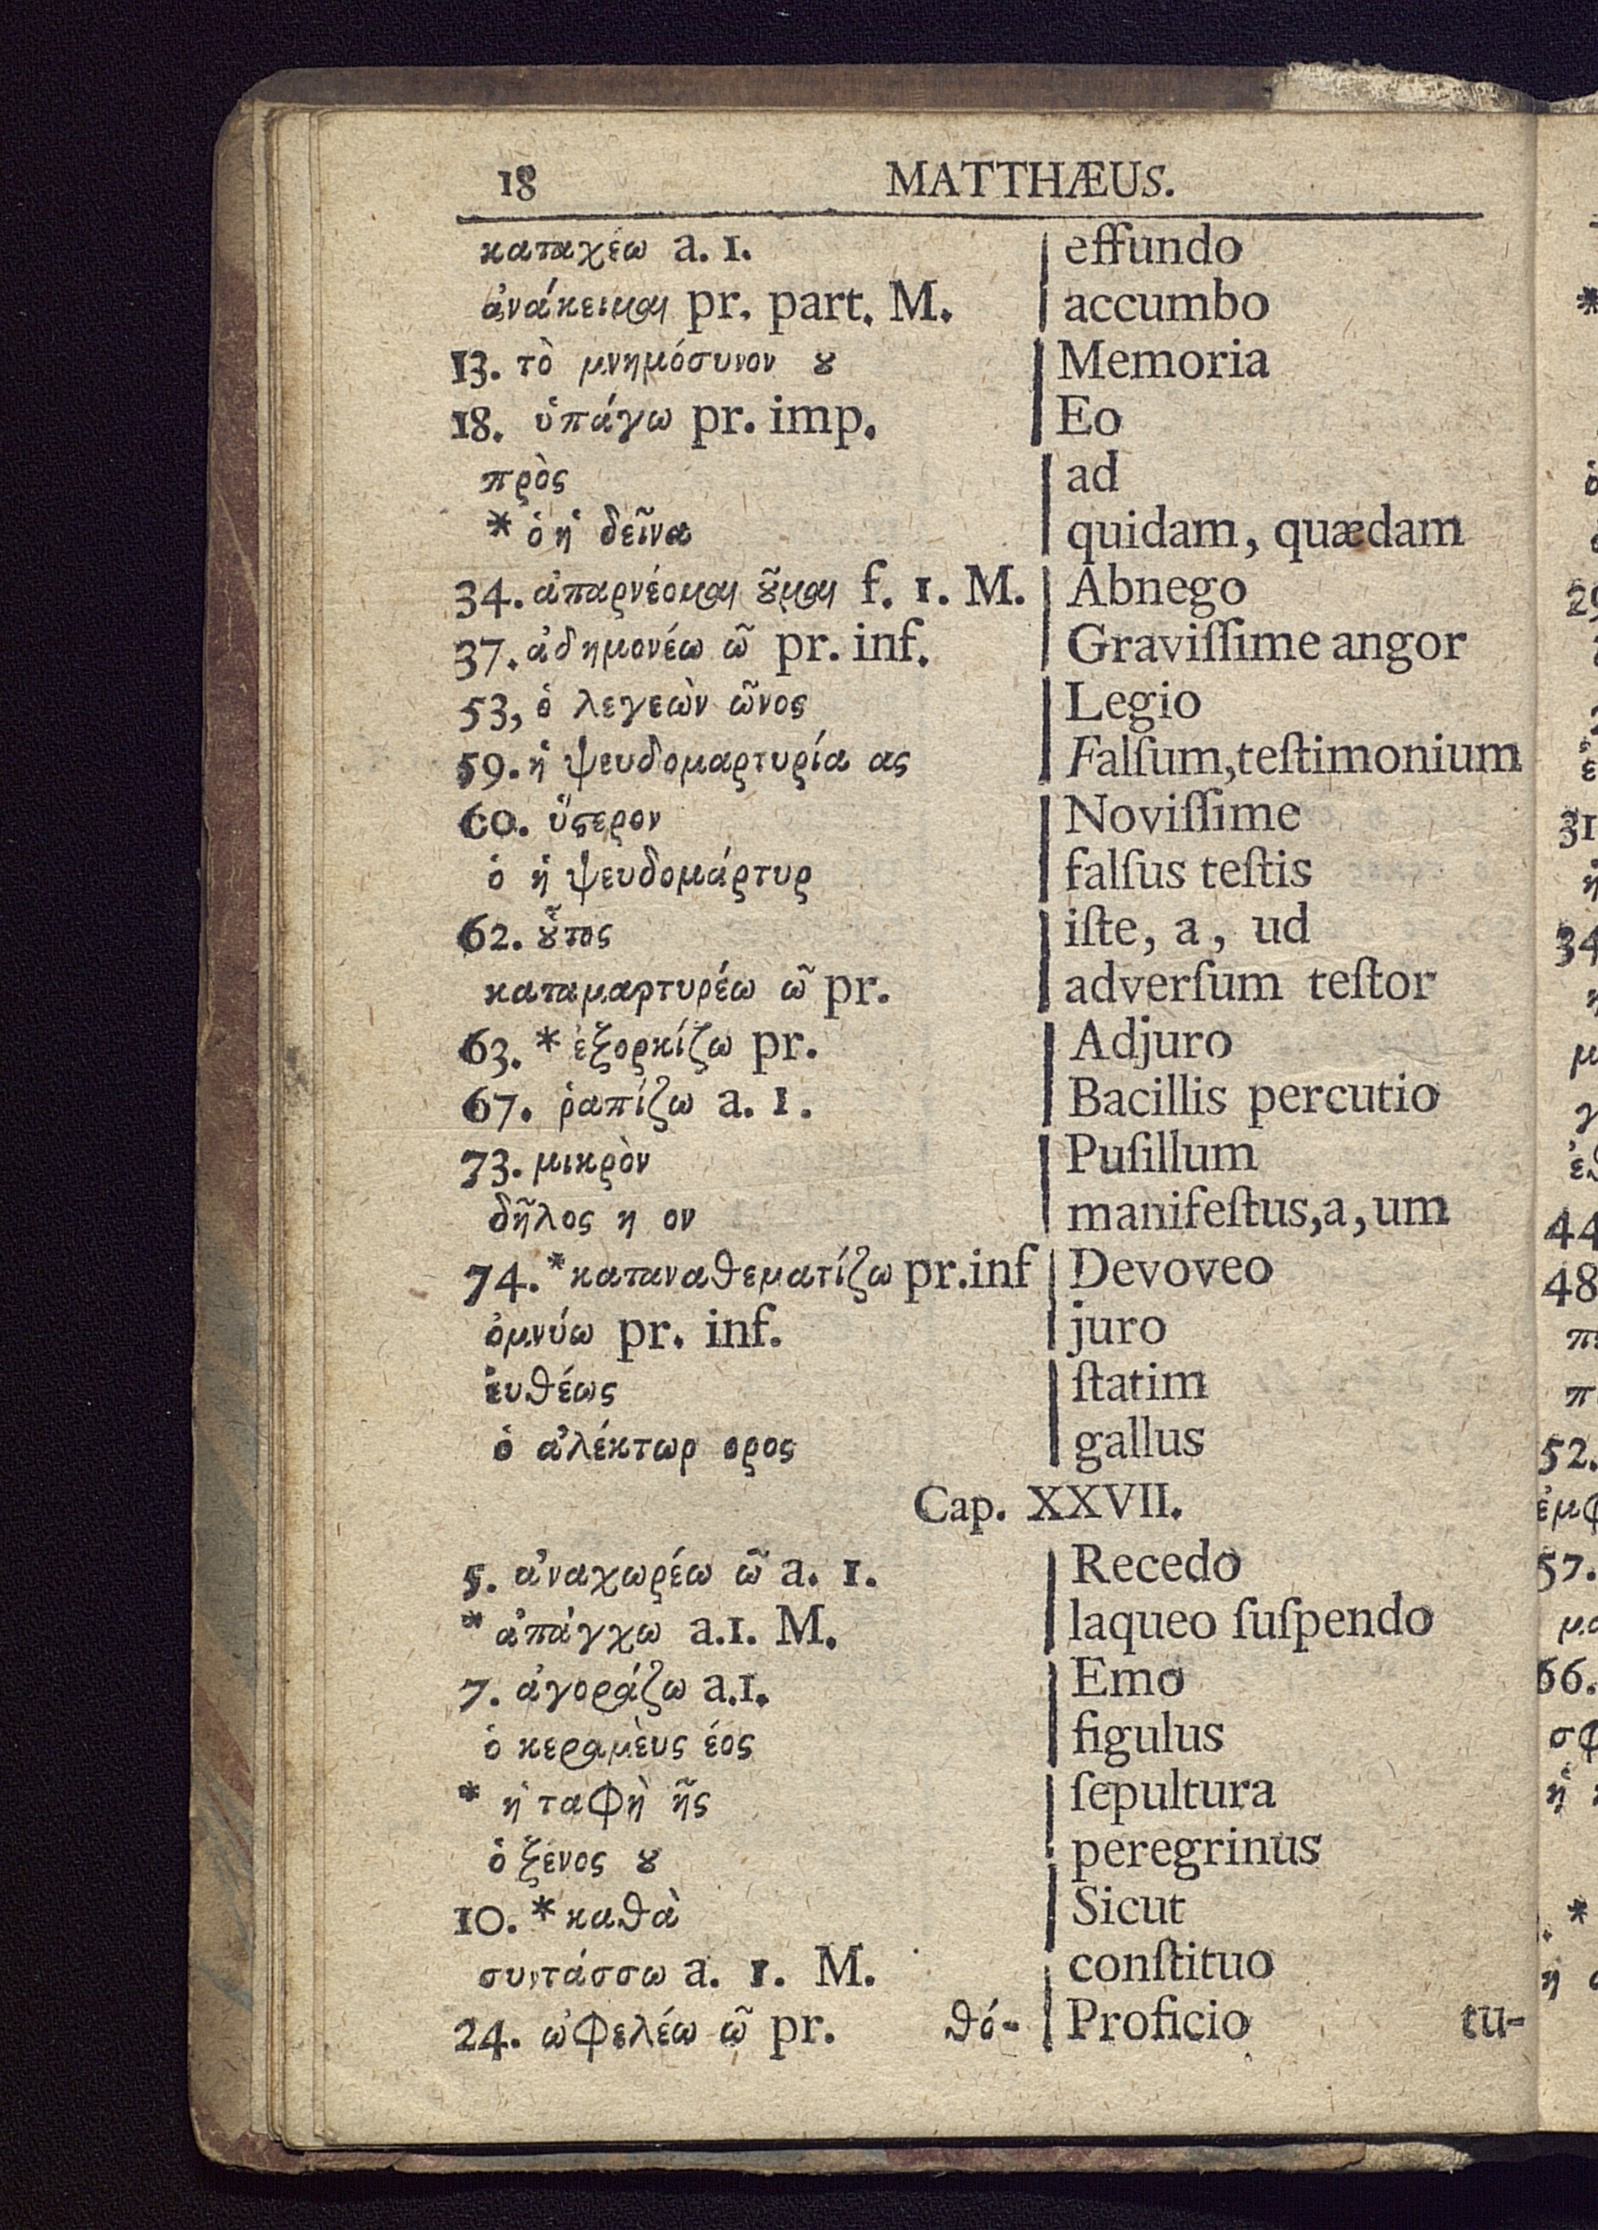 18 MATTHÆUS.
καταχέω a. 1. effundo
ἀνάκειμαι pr. part. M. accumbo
13. τὸ μνημόσυνον ȣ Memoria
18. ὑπάγω pr. imp. Eo
πρὸς ad
* ὁ ἡ δεῖνα quidam, quædam
34. ἀπαρνέομαι ȣ͂μαι f. 1. M. Abnego
37. ἀδημονέω ῶ pr. inf. Graviſſime angor
53, ὁ λεγεὼν ῶνος Legio
59. ἡ ψευδομαρτυρία ας Falſum, teſtimonium
60. ὕϛερον Noviſſime
ὁ ἡ ψευδομάρτυρ falſus teſtis
62. ȣ̃τος iſte, a, ud
καταμαρτυρέω ῶ pr. adverſum teſtor
63. * ἐξορκίζω pr. Adjuro
67. ῥαπίζω a. 1. Bacillis percutio
73. μικρὸν Puſillum
δῆλος η ον manifeſtus, a, um
74. * καταναθεματίζω pr. inf Devoveo
ὀμνύω pr. inf. juro
ἐυθέως ſtatim
ὁ ἀλέκτωρ ορος gallus
Cap. XXVII.
5. ἀναχωρέω ῶ a. 1. Recedo
* ἀπάγχω a. 1. M. laqueo ſuſpendo
7. ἀγοράζω a. 1. Emo
ὁ κεραμὲυς έος figulus
* ἡ ταφὴ ῆς ſepultura
ὁ ξένος ȣ peregrinus
10. * καθὰ Sicut
συντάσσω a. 1. M. conſtituo
24. ὠφελέω ῶ pr. Proficio
θό- tu-